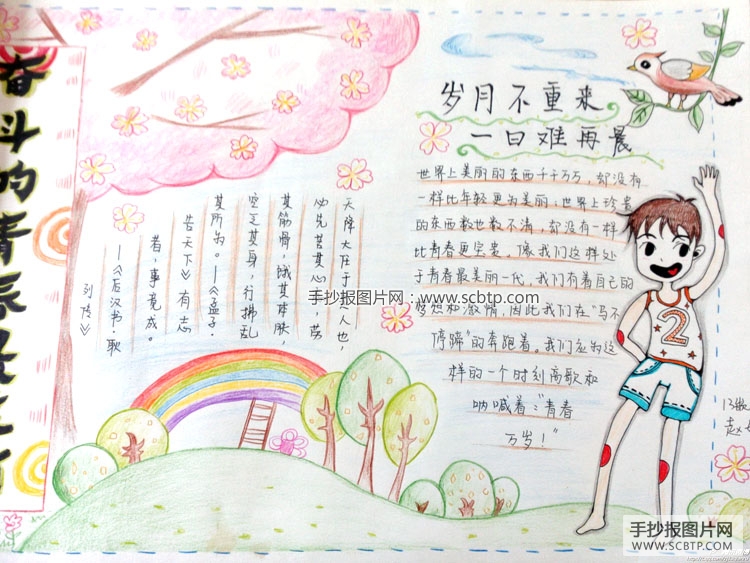 奋斗的青春
天降大任于人也,
必先苦其心,劳
其筋骨,饿其体肤,
空乏其身,行拂乱
其所为。—《孟子·
天下》有志
者,事竟成。
—《后汉书·耿
列传》
岁月不重来
一日难再晨
世界上美丽的东西千千万万,却没有
一样比年轻更为美丽;世界上珍贵
的东西数也数不清,却没有一样
比青春更宝贵。像我们这样处
于青春最美丽一代,我们有着自己的
梦想和激情,因此我们在"马不
停蹄"的奔跑着。我们应为这
样的一个时刻高歌和
呐喊着:"青春
万岁!"
2
手抄报图片网:www.scbtp.com
手抄报图片网
WWW.SCBTP.COM